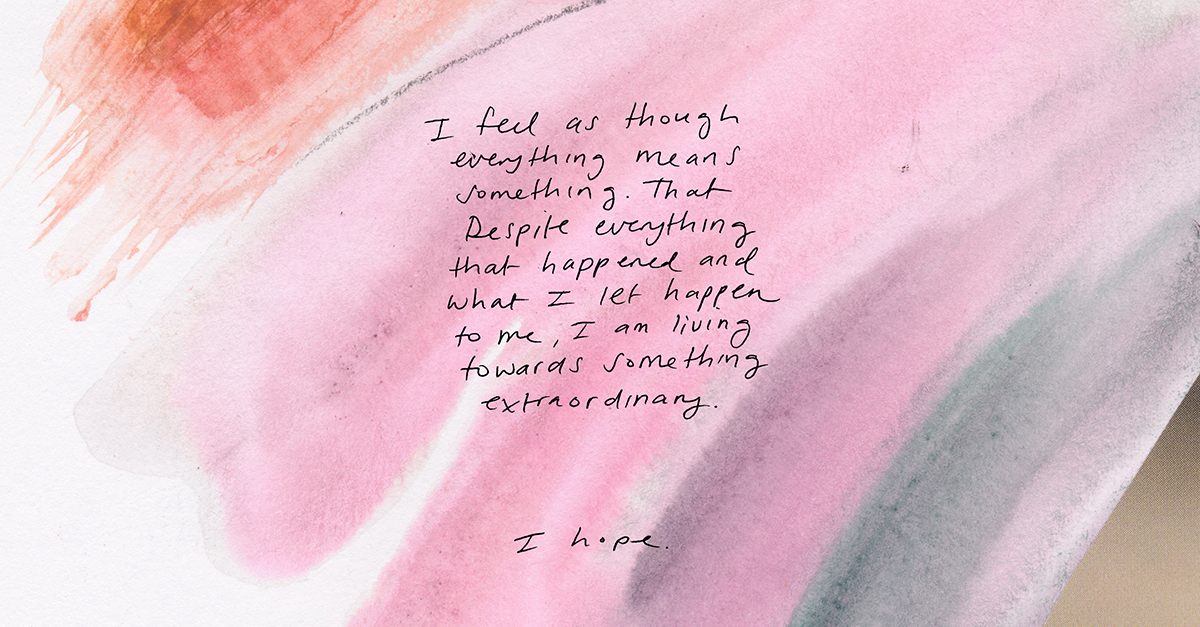 I feel as though
everything means
something. That
Despite everything
that happened and
what I let happen
to me, I am living
towards something
extraordinary.
I hope.